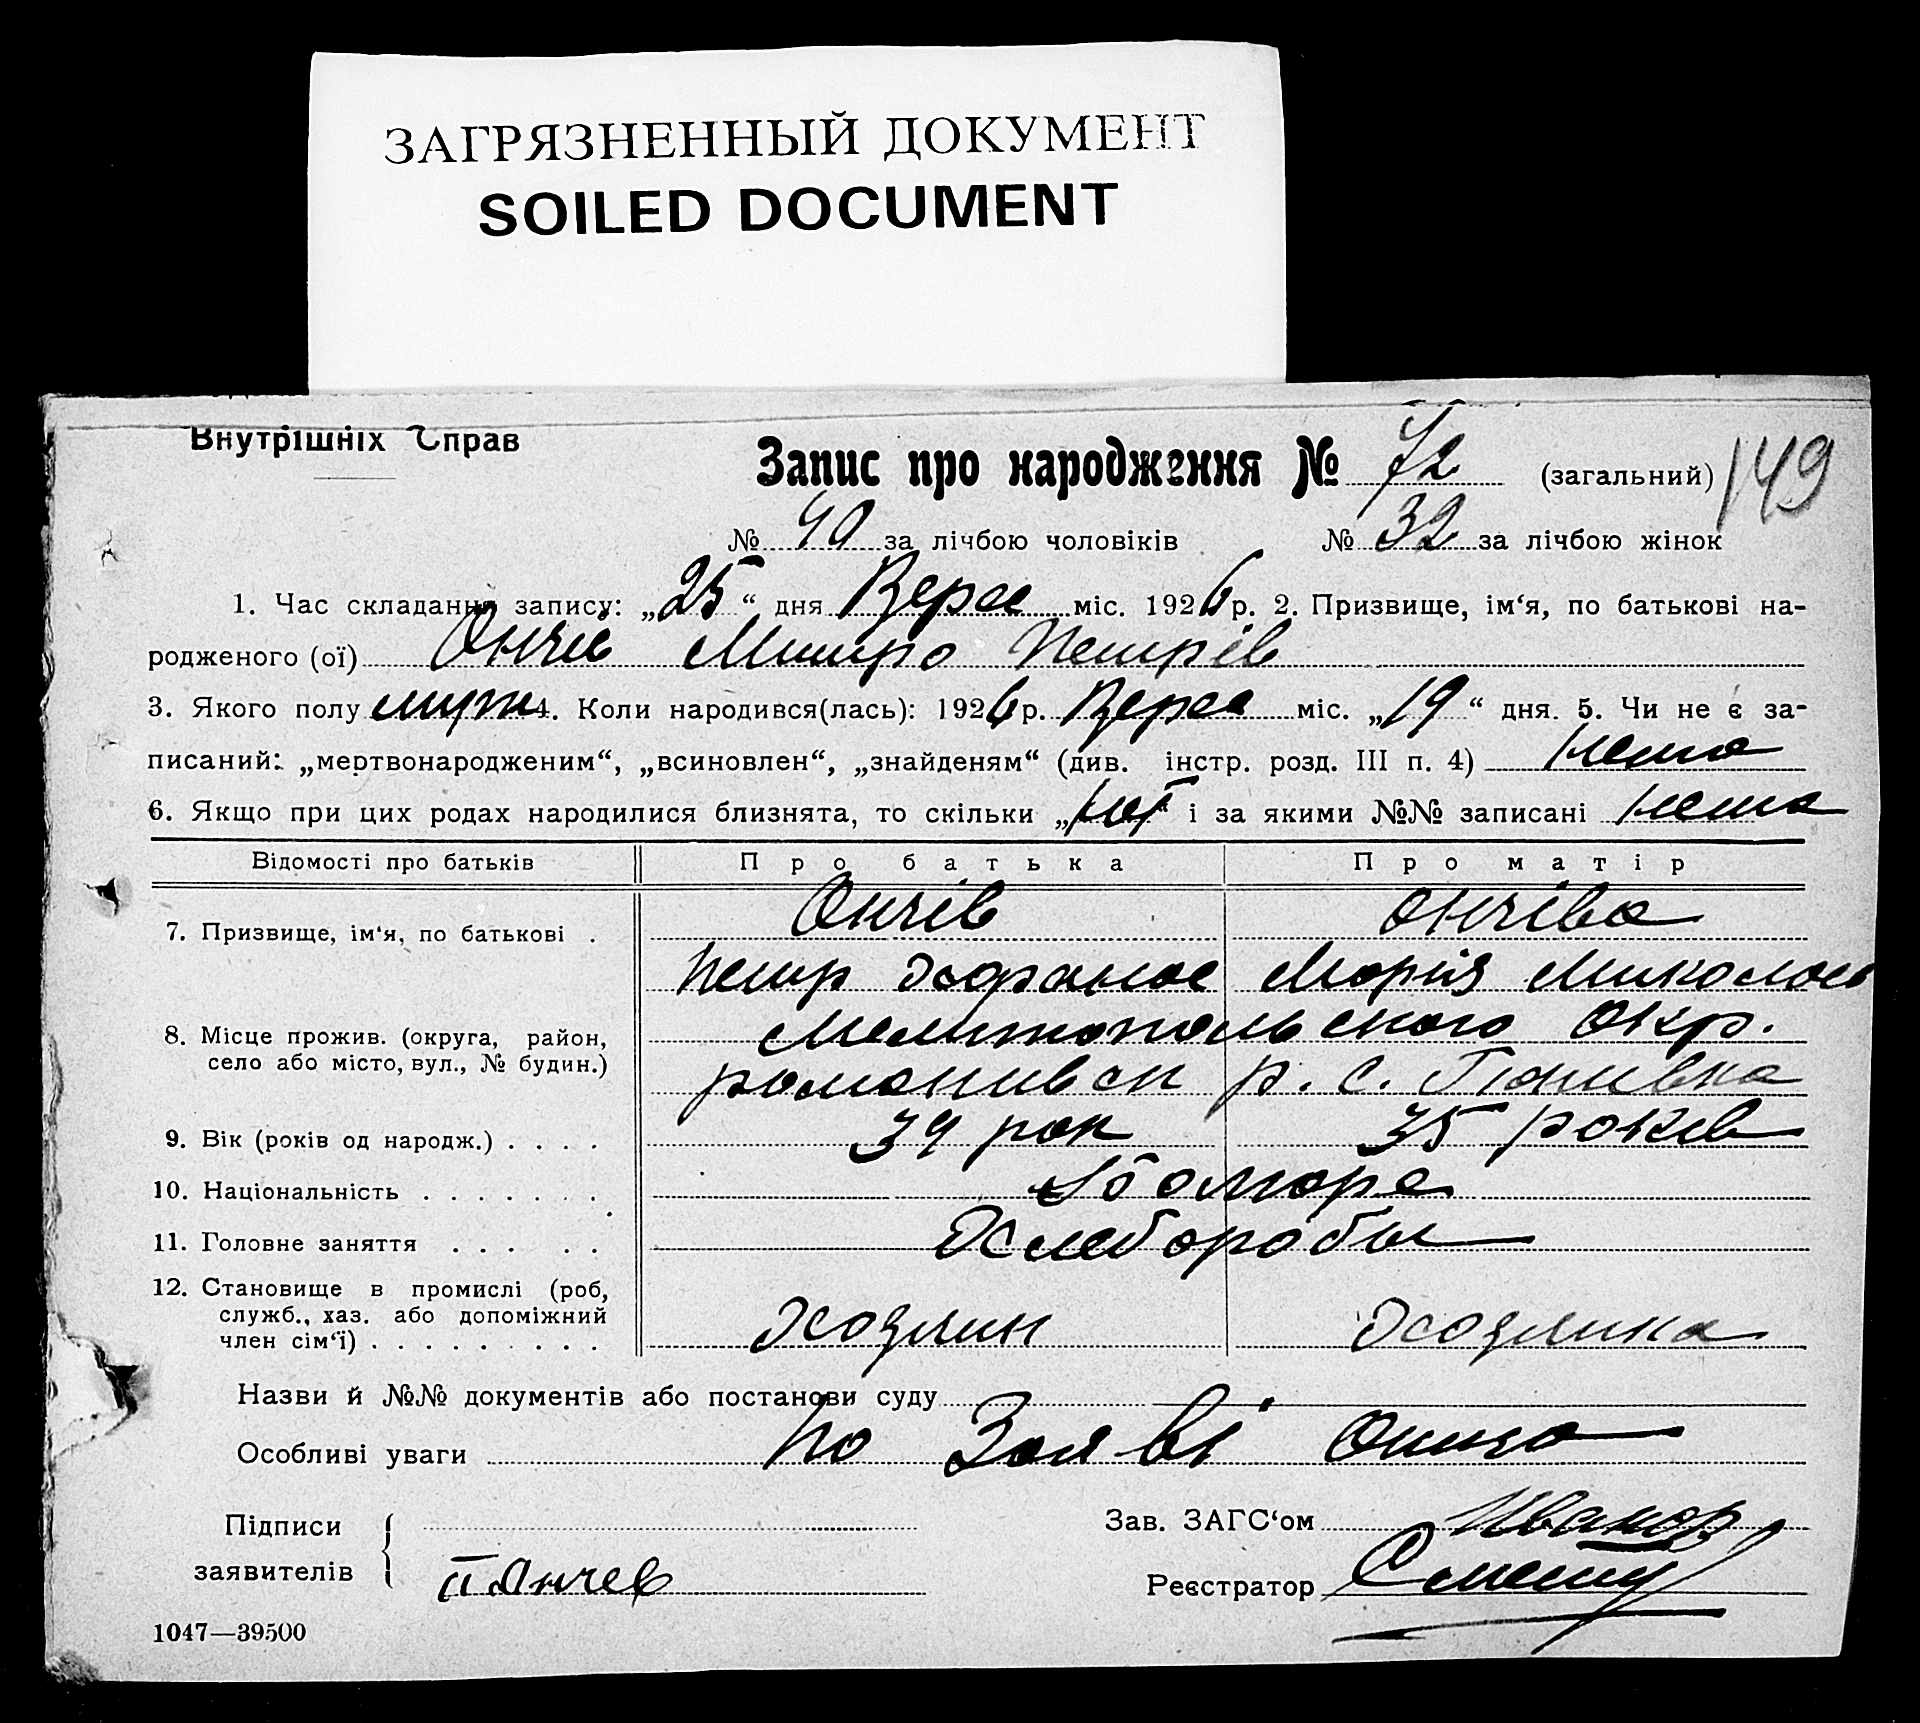 ЗАГРЯЗНЕННЫЙ ДОКУМЕНТ
SOILED DOCUMENT
Внутрішніх Справ
Запис про народження № 72 (загальний) 149
№ 40 за лічбою чоловіків № 32 за лічбою жінок
1. Час складання запису: „25“ дня Верес міс. 1926 р. 2. Призвище, ім‘я, по батькові на-
родженого (ої) Ончів Митро Петрів
3. Якого полу муж 4. Коли народився(лась): 1926 р. Верес міс. „19“ дня. 5. Чи не є за-
писаний: „мертвонародженим“, „всиновлен“, „знайденям“ (див. інстр. розд. III п. 4) Нема
6. Якщо при цих родах народилися близнята, то скільки „ні“ і за якими №№ записані Нема
Відомості про батьків Про батька Про матір
7. Призвище, ім‘я, по батькові . Ончів Ончіва
Петр Мария Миколаєв
8. Місце прожив. (округа, район, село або місто, вул., № будин.) Мелитопольського Окр.
романивск р. с. Ганивка
9. Вік (років од народж.) . . . . 39 рок 35 років
10. Національність . . . . . . .
11. Головне заняття . . . . . Хлебороби
12. Становище в промислі (роб,
служб., хаз. або допоміжний
член сім‘ї) . . . . . . . . . Хозяин Хозяика
Назви й №№ документів або постанови суду
Особливі уваги По Заяві Отца
Підписи Зав. ЗАГС‘ом Иванов
заявителів П Ончев Реєстратор
1047—39500